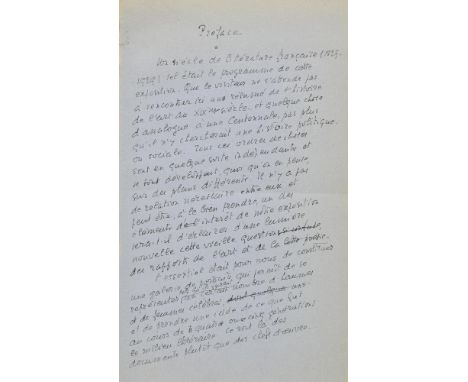 Préface
Un siècle de littérature française (1825-
tel était le programme de cette
exposition. Que le visiteur ne s'attende pas
à rencontrer ici une résumé de l'histoire
de l'art au XIXe siècle, et quelque chose
d'analogue à une Centennale, pas plus
qu'il n'y chercherait une histoire politique
ou sociale. Tous ces ordres de choses
sont en quelque sorte indépendants et
se sont développés, quoi qu'on en pense,
sur des plans différents. Il n'y a pas
de relation nécessaire entre eux et
peut être, à le bien prendre, un des
éléments de l'intérêt de notre exposition
serait-il d'éclairer d'une lumière
nouvelle cette vieille question
des rapports de l'art et de la
L'essentiel était pour nous de constituer
une galerie de portraits, qui permît de se
représenter un certain nombre d'hommes
et de femmes célèbres,
et de prendre une idée de ce que fut
au cours de quatre ou cinq générations
ce milieu littéraire. Ce sont là des
documents plutôt que des chefs d'œuvre.